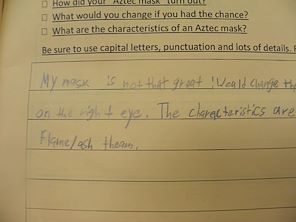 □ How did your "Aztec mask" turn out?
□ What would you change if you had the chance?
□ What are the characteristics of an Aztec mask?
Be sure to use capital letters, punctuation and lots of details.
My mask is not that great I Would change
on the right eye. The characteristics are
Flame/ash